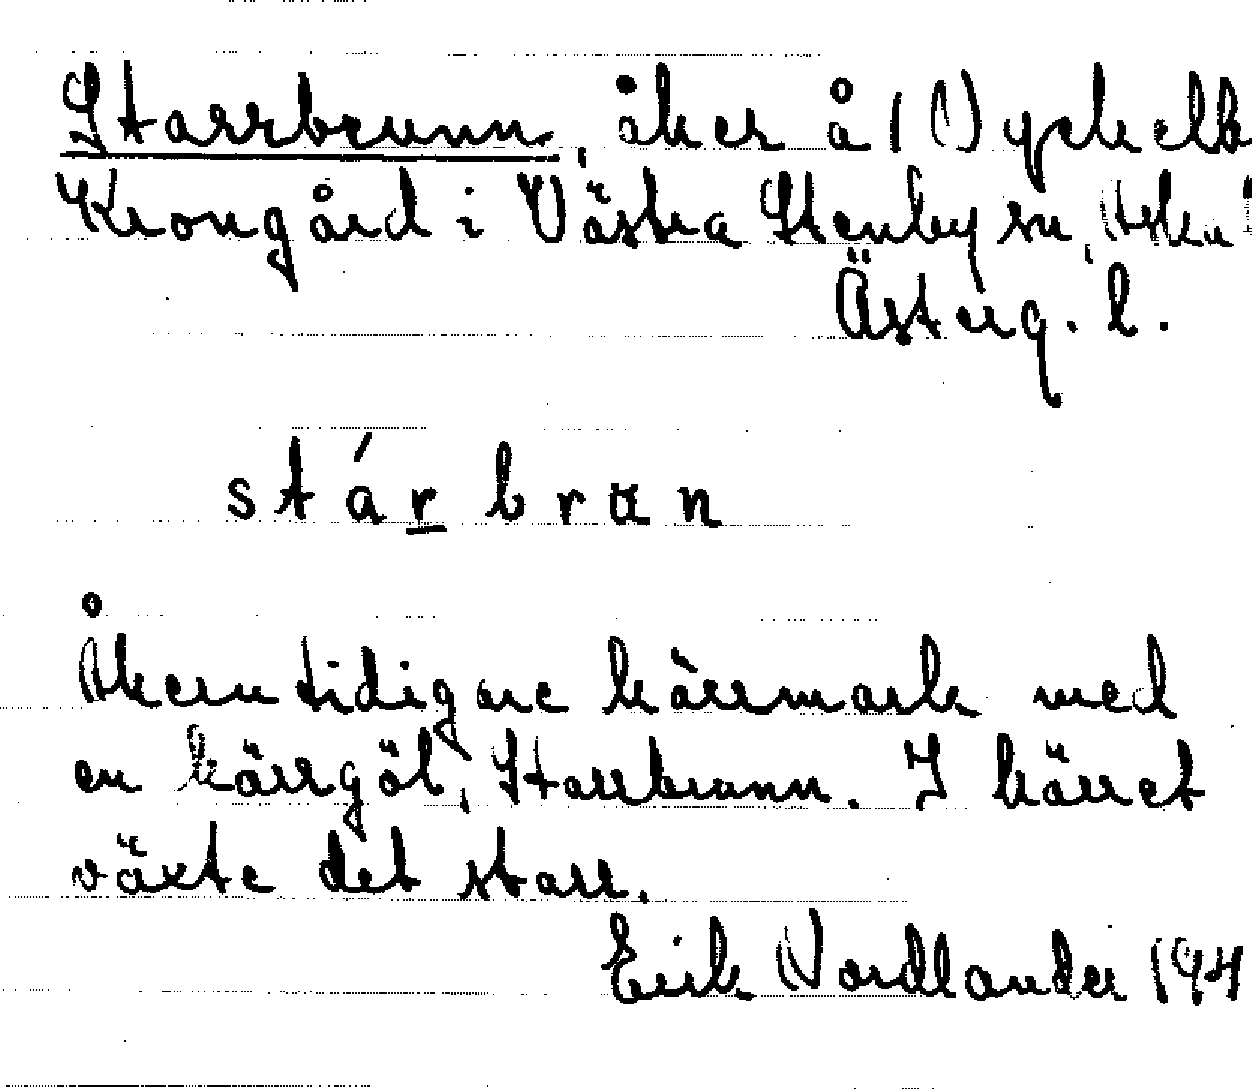 Starrbrunn, åker å Nyckelb
Krongård i Västra Stenby sn, Aska
Österg. l.
stárbrun
Åkern tidigare kärrmark med
en kärrgöl, Starrbrunn. I kärret
växte det starr.
Erik Nordlander 194